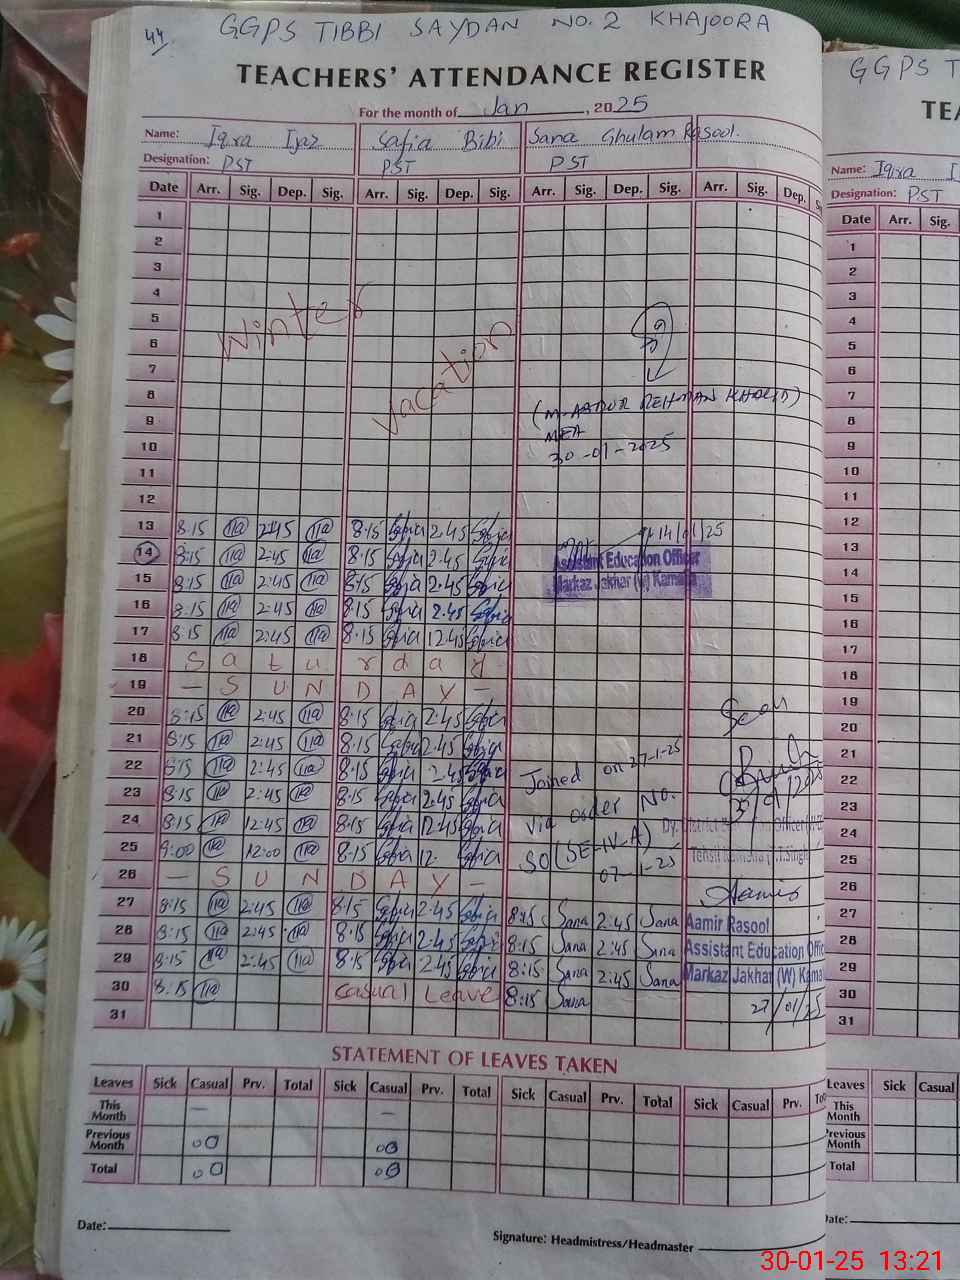 44
GGPS TIBBI SAYDAN NO. 2 KHAJOORA
TEACHERS' ATTENDANCE REGISTER
For the month of Jan, 2025
Name: Iqra Ijaz Safia Bibi Sana Ghulam Rasool.
Designation: PST PST PST
Date Arr. Sig. Dep. Sig. Arr. Sig. Dep. Sig. Arr. Sig. Dep. Sig. Arr. Sig. Dep.
1
2
3
4
5
6
7
8
9
10
11
12
Winter
vacation
MEA
30-01-2025
13 8:15 2:45 8:15 Safia 2.45 Safia
14 8:15 2:45 8:15 Safia 2.45 Safia
15 8:15 2:45 8:15 Safia 2.45 Safia
16 8:15 2:45 8:15 Safia 2.45 Safia
17 8:15 2:45 8:15 Safia 12.45 Safia
14/01/25
Assistant Education Officer
Markaz Jakhar (W) Kamalia
18 Saturday
19 — SUNDAY —
20 8:15 2:45 8:15 Safia 2.45 Safia
21 8:15 2:45 8:15 Safia 2.45 Safia
22 8:15 2:45 8:15 Safia 2.45 Safia
23 8:15 2:45 8:15 Safia 2.45 Safia
24 8:15 12:45 8:15 Safia 12.45 Safia
25 9:00 12:00 8:15 Safia 12. Safia
26 — SUNDAY —
Seen
Joined on 27-1-25
via order No.
SO(SE-IV-A)
07-1-25
27 8:15 2:45 8:15 Safia 2.45 Safia 8:15 Sana 2:45 Sana
28 8:15 2:45 8:15 Safia 2.45 Safia 8:15 Sana 2:45 Sana
29 8:15 2:45 8:15 Safia 2.45 Safia 8:15 Sana 2:45 Sana
30 8:15 Casual Leave 8:15 Sana
31
Aamir Rasool
Assistant Education Offic
Markaz Jakhar (W) Kama
27/01/25
STATEMENT OF LEAVES TAKEN
Leaves Sick Casual Prv. Total Sick Casual Prv. Total Sick Casual Prv. Total Sick Casual Prv.
This Month — —
Previous Month
Total
Date:
Signature: Headmistress/Headmaster
GGPS T
TEA
Name: Iqra I
Designation: PST
Date Arr. Sig.
1
2
3
4
5
6
7
8
9
10
11
12
13
14
15
16
17
18
19
20
21
22
23
24
25
26
27
28
29
30
31
Leaves Sick Casual
This Month
Previous Month
Total
Date:
30-01-25 13:21